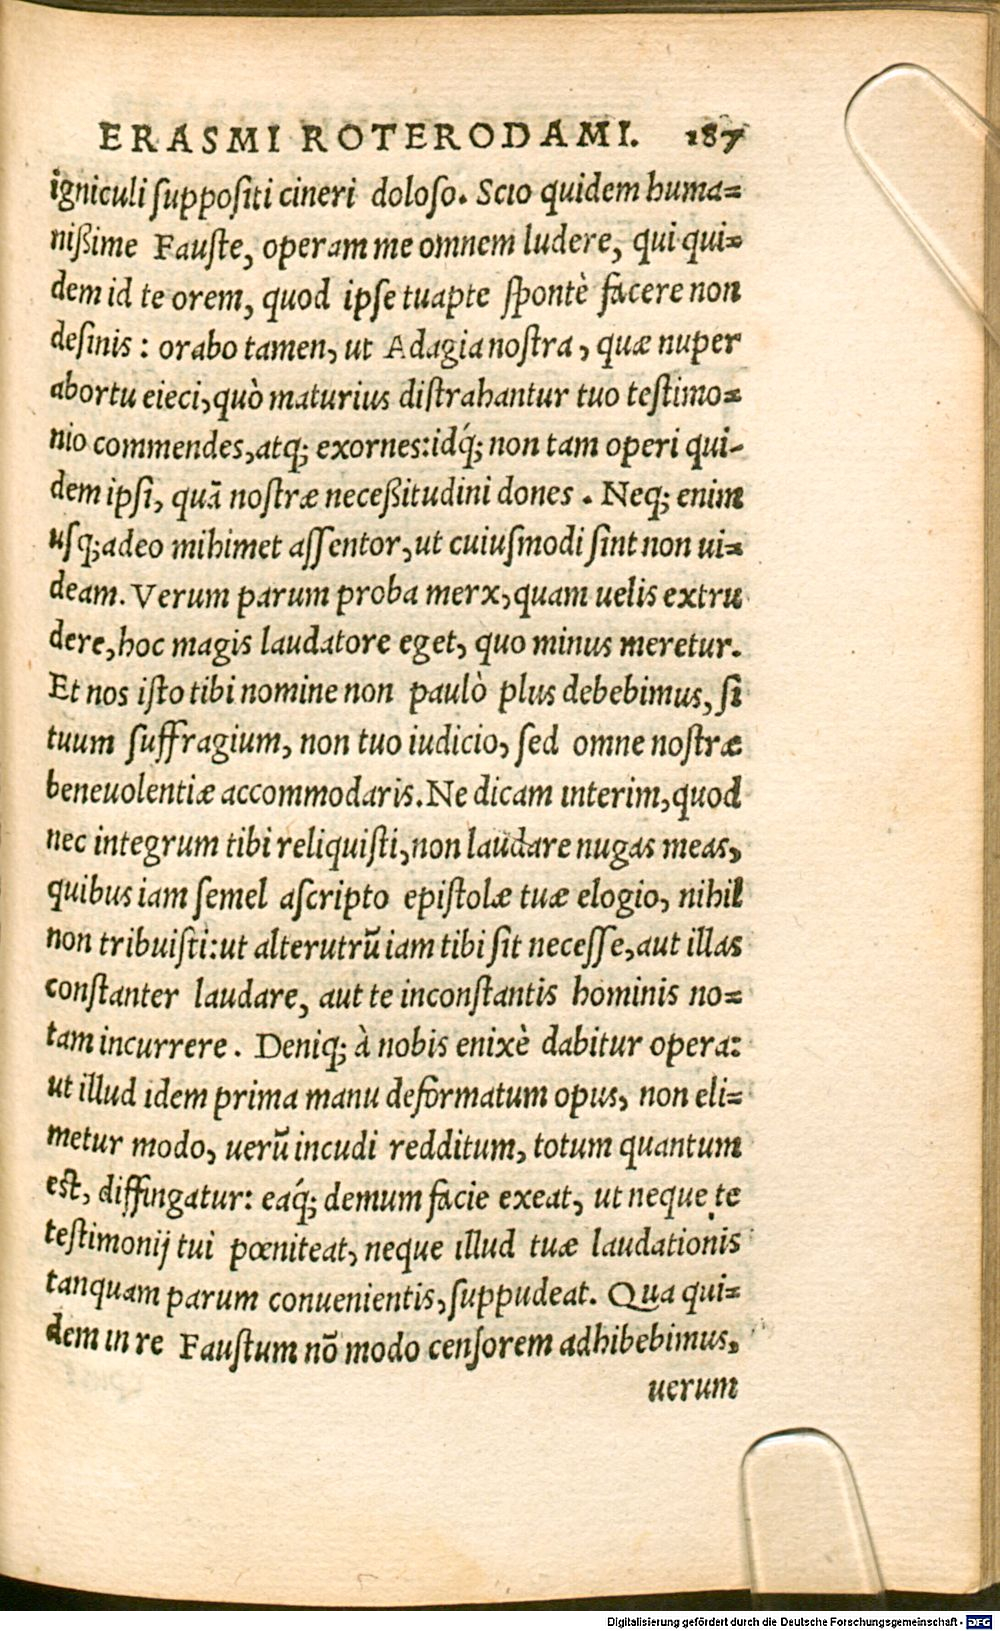 ERASMI ROTERODAMI. 187
igniculi suppositi cineri doloso. Scio quidem huma=
nißime Fauste, operam me omnem ludere, qui qui=
dem id te orem, quod ipse tuapte spontè facere non
desinis : orabo tamen, ut Adagia nostra, quæ nuper
abortu eieci, quò maturius distrahantur tuo testimo=
nio commendes, atq; exornes: idq́; non tam operi qui-
dem ipsi, quā nostræ neceßitudini dones . Neq; enim
usq; adeo mihimet assentor, ut cuiusmodi sint non ui=
deam. Verum parum proba merx, quam uelis extru
dere, hoc magis laudatore eget, quo minus meretur.
Et nos isto tibi nomine non paulò plus debebimus, si
tuum suffragium, non tuo iudicio, sed omne nostræ
beneuolentiæ accommodaris. Ne dicam interim, quod
nec integrum tibi reliquisti, non laudare nugas meas,
quibus iam semel ascripto epistolæ tuæ elogio, nihil
non tribuisti: ut alterutrū iam tibi sit necesse, aut illas
constanter laudare, aut te inconstantis hominis no=
tam incurrere . Deniq; à nobis enixè dabitur opera:
ut illud idem prima manu deformatum opus, non eli=
metur modo, uerū incudi redditum, totum quantum
est, diffingatur: eaq́; demum facie exeat, ut neque te
testimonij tui pœniteat, neque illud tuæ laudationis
tanquam parum conuenientis, suppudeat. Qua qui=
dem in re Faustum nō modo censorem adhibebimus,
uerum
Digitalisierung gefördert durch die Deutsche Forschungsgemeinschaft - DFG